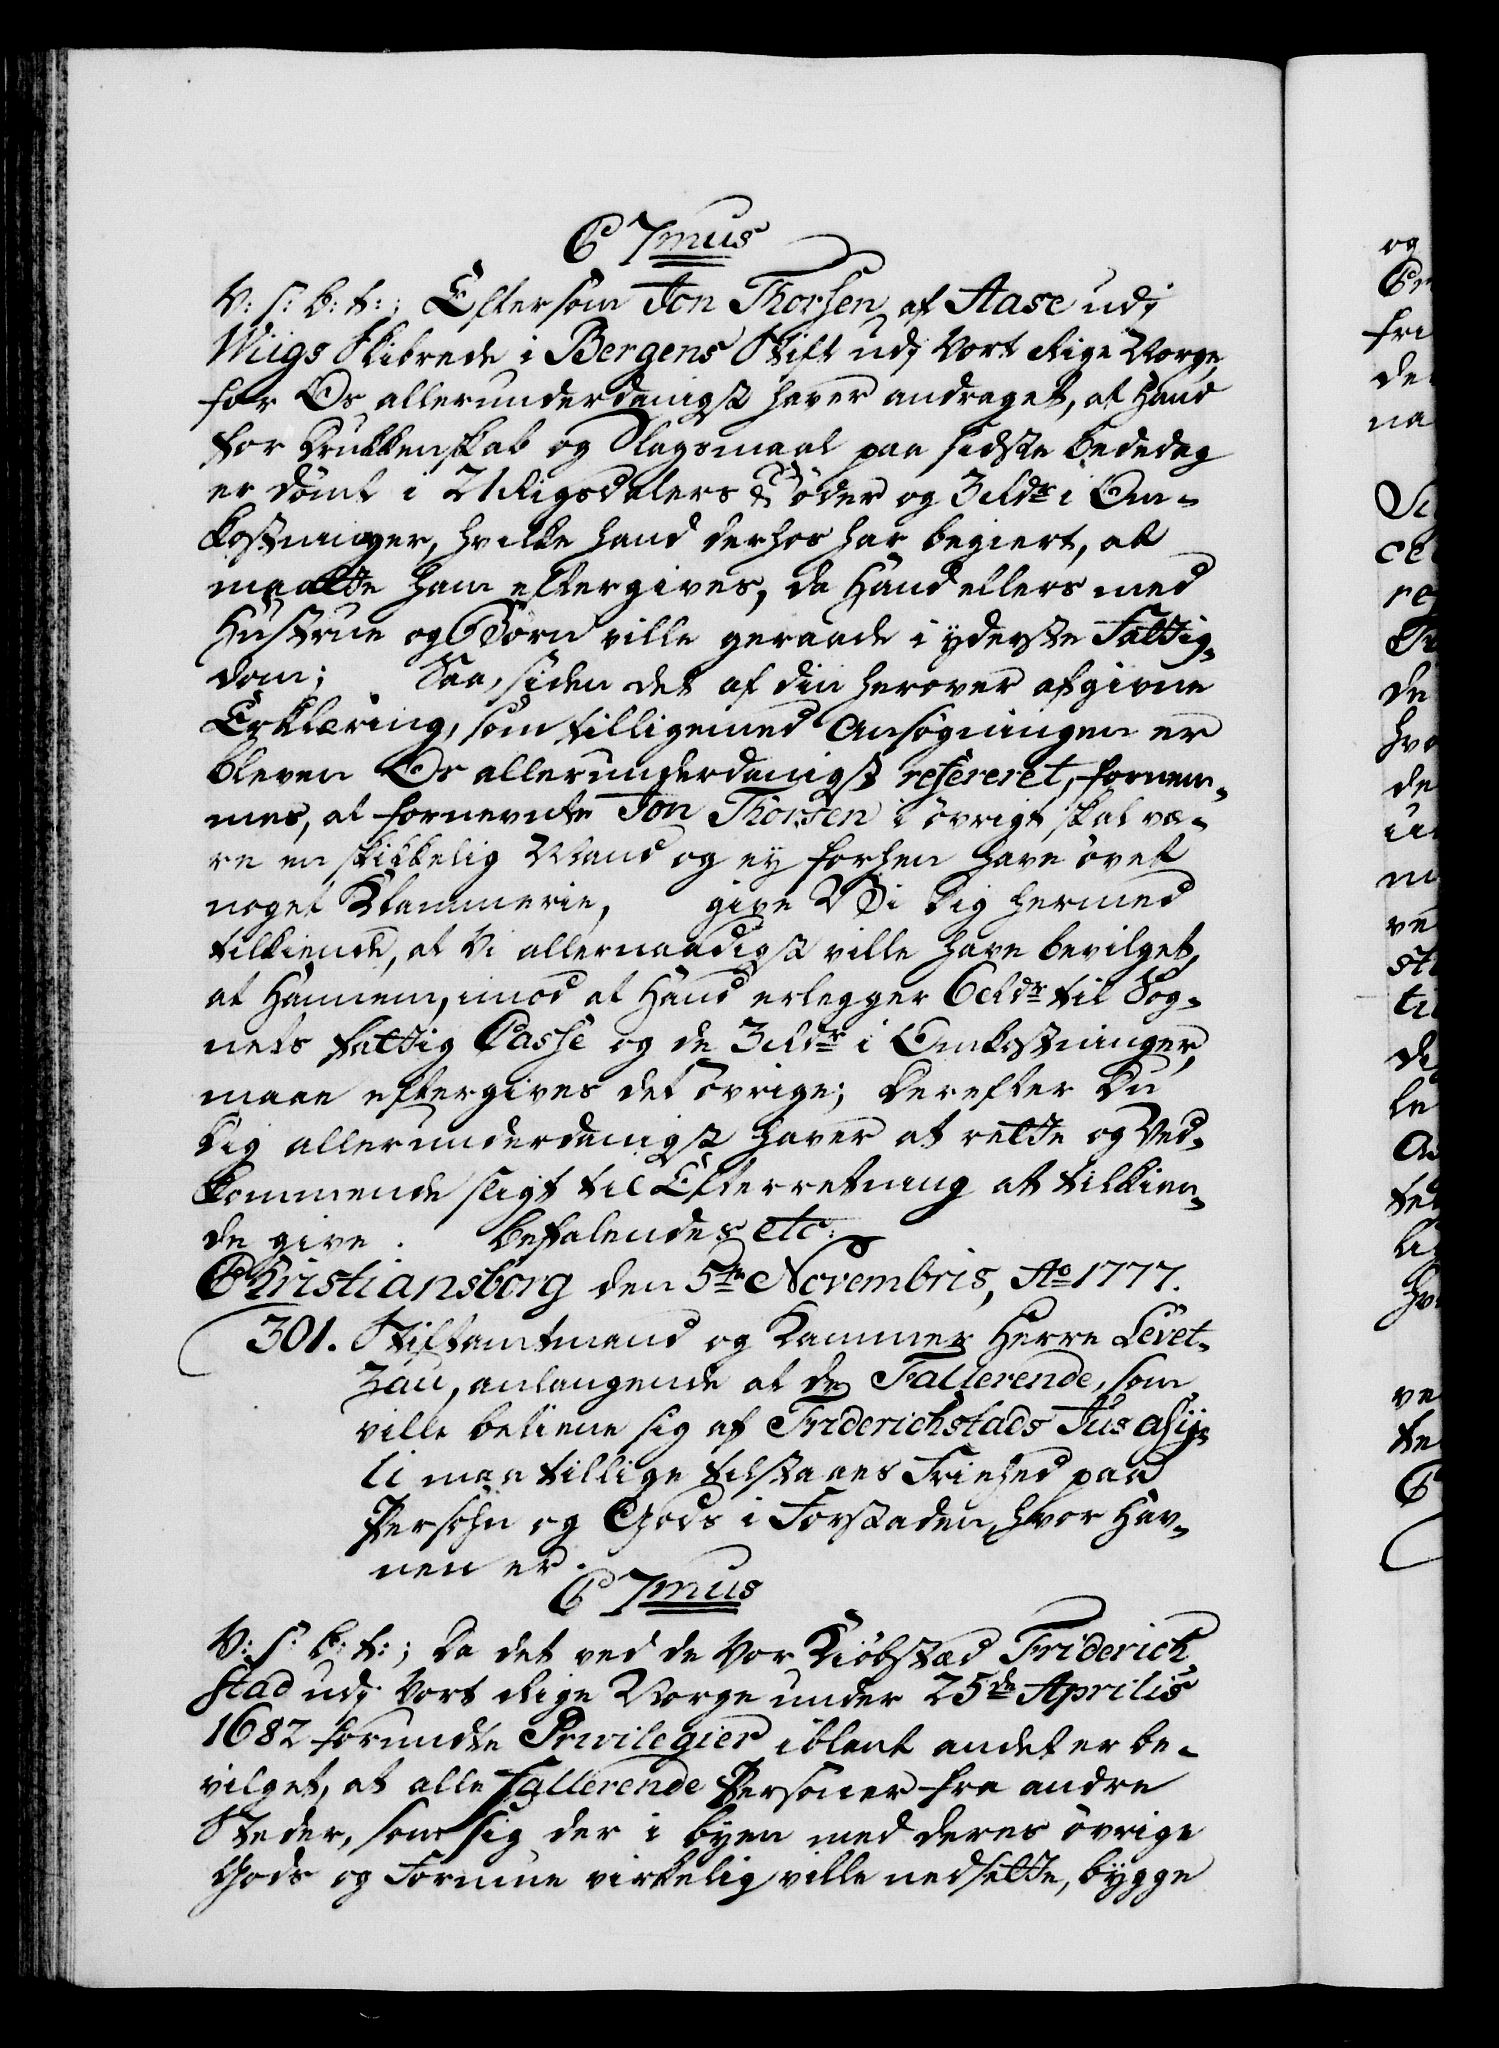 C 7mus
V: S: b: t:; Eftersom Jon Thorsen af Aase udj
Wiigs Skibrede i Bergens Stift udj Vort Rige Norge
for Os allerunderdanigst haver andraget, at hand
for Drukkenskab og Slagsmaal paa sidste Bededag
er dømt i 21 Rigsdalers Bøder og 3 Rdr i Om-
kostninger, hvilke hand derhos har begiert, at
maatte ham eftergives, da hand ellers med
Hustrue og Børn ville geraade i yderste Fattig-
dom; Saa, siden det af din herover afgivne
Erklæring, som tilligemed Ansøgningen er
bleven Os allerunderdanigst refereret, fornem-
mes, at fornevnte Jon Thorsen i øvrigt skal væ-
re en skikkelig Mand og ey forhen have øvet
noget Klammerie, give Vi dig hermed
tilkiende, at Vi allernaadigst ville have bevilget,
at Hannem, imod at Hand erlegger 6 Rdr til Sog-
nets fattig Casse og de 3 Rdr i Omkostninger,
maae eftergives det øvrige; Derefter Du
dig allerunderdanigst haver at rette og Ved-
kommende sligt til Efterretning at tilkien-
de give. Befalendes etc:
Christiansborg den 5te Novembris, Ao 1777.
301. Stiftamtmand og Kammer Herre Levet-
zau, anlangende at de Fallerende, som
ville betiene sig af Friderichstads Jus asÿ-
li maa tillige tilstaaes Friehed paa
Persohn og Gods i Forstaden, hvor Hav-
nen er.
C 7mus
V: S: b: t:; Da det ved de Vor Kiøbstæd Friderich
stad udj Vort Rige Norge under 25de Aprilis
1682 forundte Privilegier iblant andet er be-
vilget, at alle Fallerende Personer fra andre
Steder, som sig der i byen med deres øvrige
Gods og Formue virkelig ville nedsette, bygge